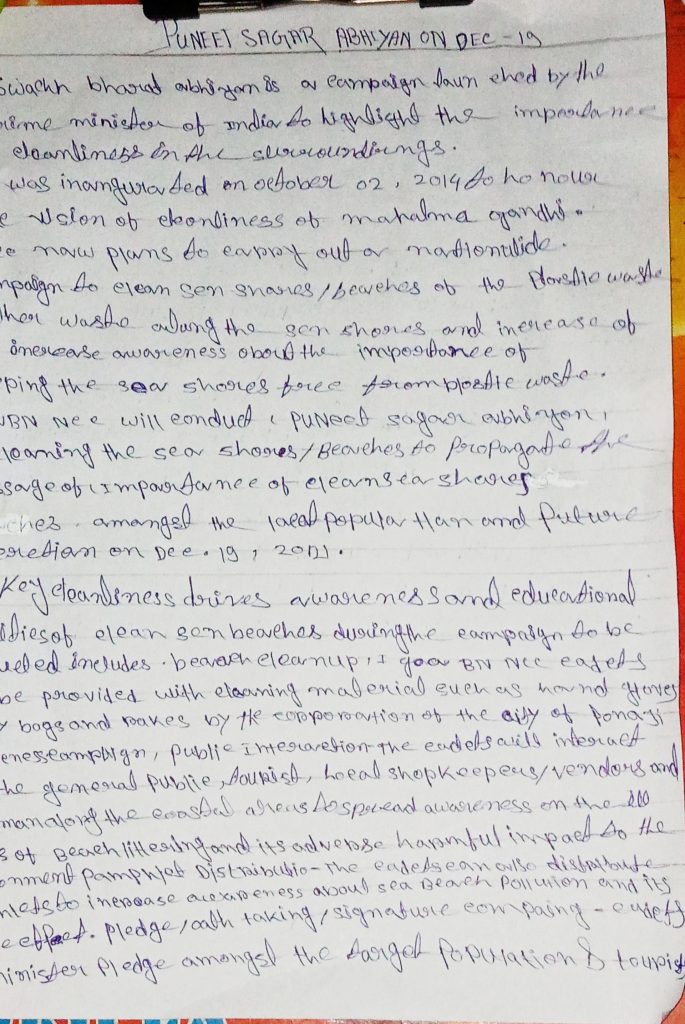 PUNEET SAGAR ABHIYAN ON DEC - 19
Swachh bharat abhiyan is a campaign laun ched by the
rime minister of India to highlight the importance
cleanliness in the surroundings.
was inaugurated on october 02, 2014 to honour
e vision of cleanliness of mahatma gandhi.
now plans to carry out a nationwide.
mpaign to clean sea shores / beaches of the Plastic waste
ther waste along the sea shores and increase of
increase awareness about the importance of
ping the sea shores free from plastic waste.
BN NCC will conduct ‘ PUNeet sagar abhiyan,
leaning the sea shores / Beaches to Propagate the
ssage of ‘Importance of clean sea shores
ches . amongst the local popula tian and future
eretian on Dec. 19, 2021.
Key cleanliness drives awareness and educational
ities of clean sea beaches during the campaign to be
ucted includes . beach cleanup, 1 goa BN NCC cadets
be provided with cleaning material such as hand gloves
bags and rakes by the corporation of the city of Panaji
eness campaign, Public Interaction the cadets will interact
he general public, tourist, local shopkeepers/vendors and
man along the coastal areas to spread awareness on the
s of Beach littering and its adverse harmful impact to the
onment Pamphlet Distributio - The cadets can also distribute
hlets to increase awareness about sea Beach Pollution and its
e effect. Pledge / oath taking / signature compaing - cadets
inister Pledge amongst the target Population & tourist